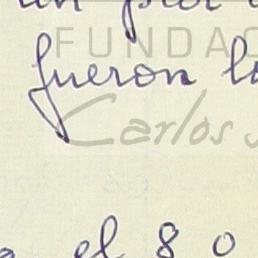 un
FUNDAC
fueron lo
Carlos
el 8 o